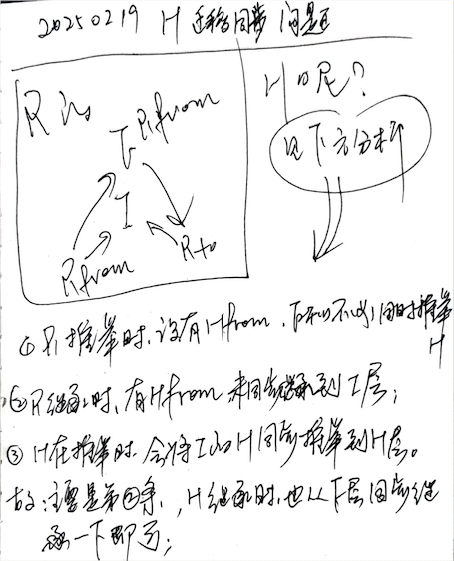 20250219 H 迁移同步问题
R is
H 呢?
见下方分析
I
Rfrom
Rto
① R 推举时,没有Hfrom,所以不必同时推举
H
② R继承时,有Hfrom 来同步继承到I层;
③ H在推举时 会将I的H同步推举到H层。
故:主要是第②条,H继承时,也从下层同步继
承一下即可;